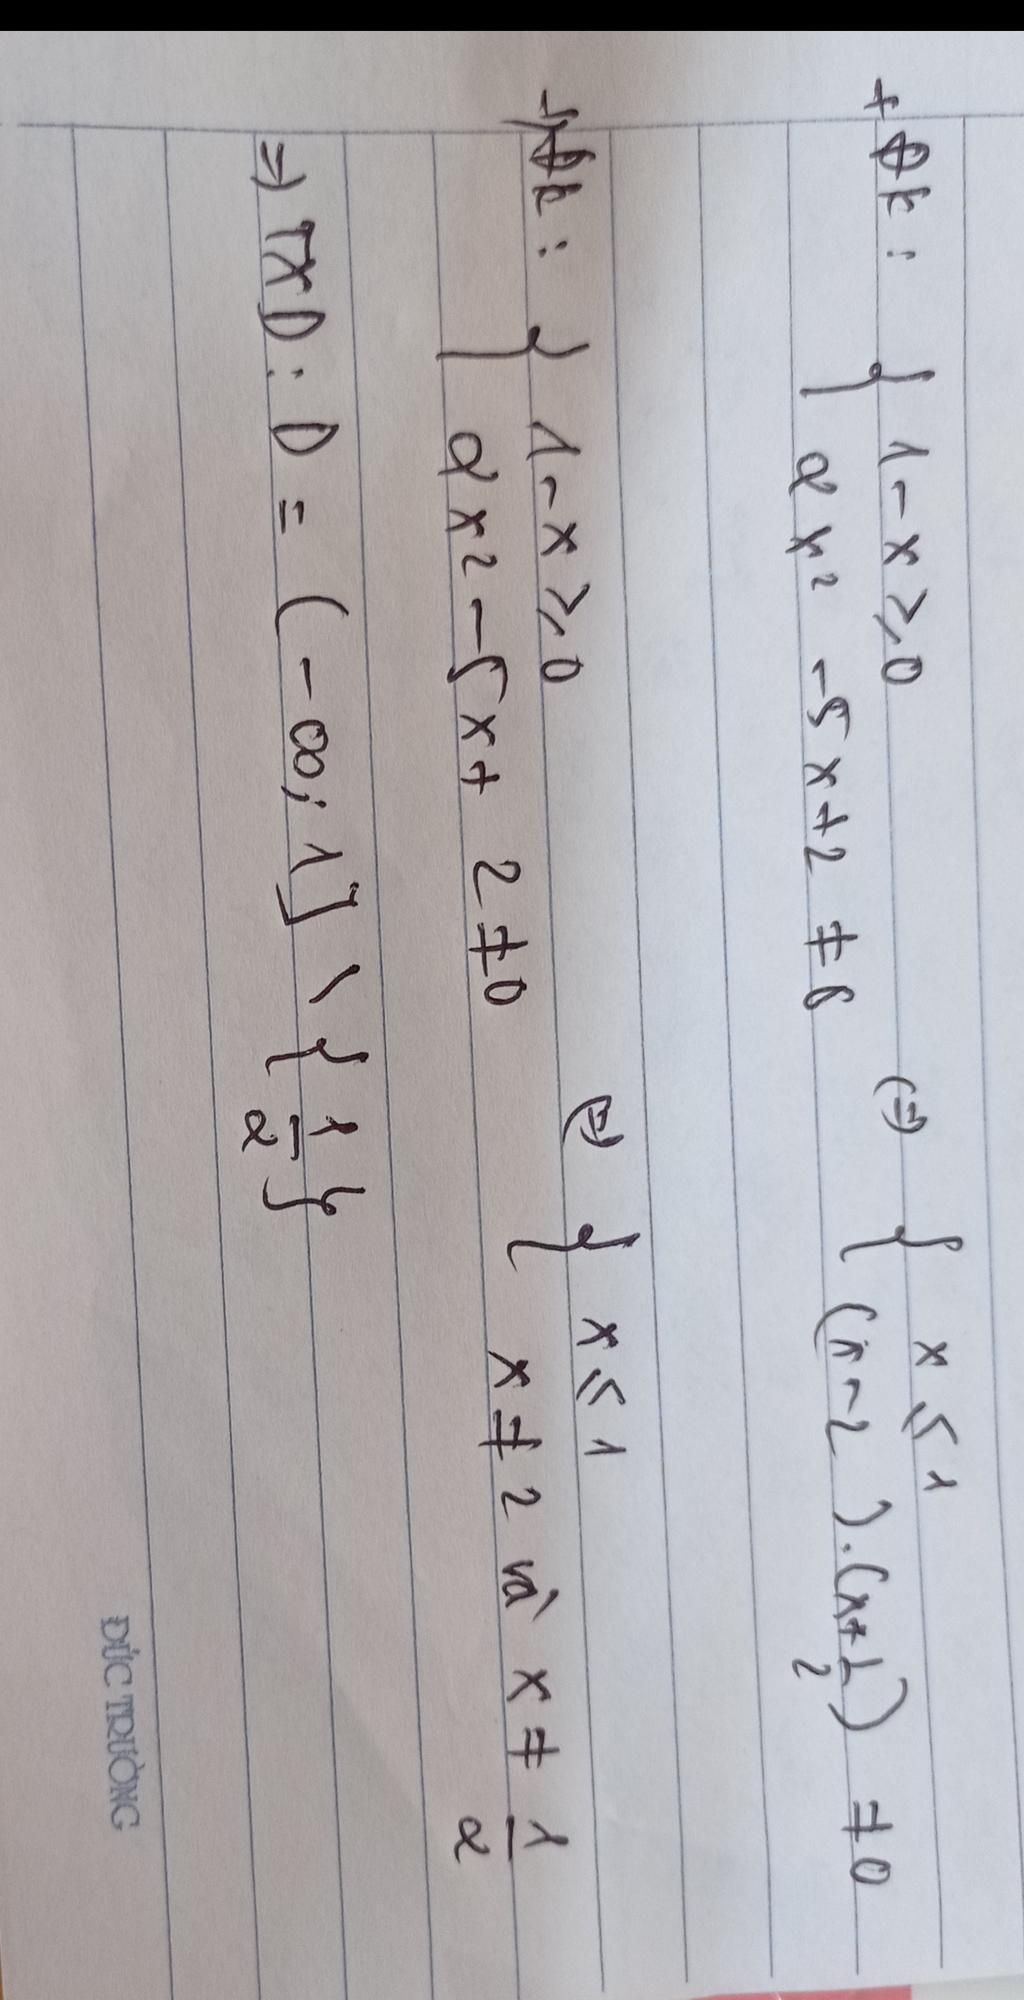 + Đk: { 1 - x ≥ 0 (=) { x ≤ 1
2x² - 5x + 2 ≠ 0 (x - 2).(x + 1/2) ≠ 0
Đk: { 1 - x ≥ 0 (=) { x ≤ 1
2x² - 5x + 2 ≠ 0 x ≠ 2 và x ≠ 1/2
=) TXD: D = (-∞; 1] \ { 1/2 }
ĐỨC TRƯỜNG